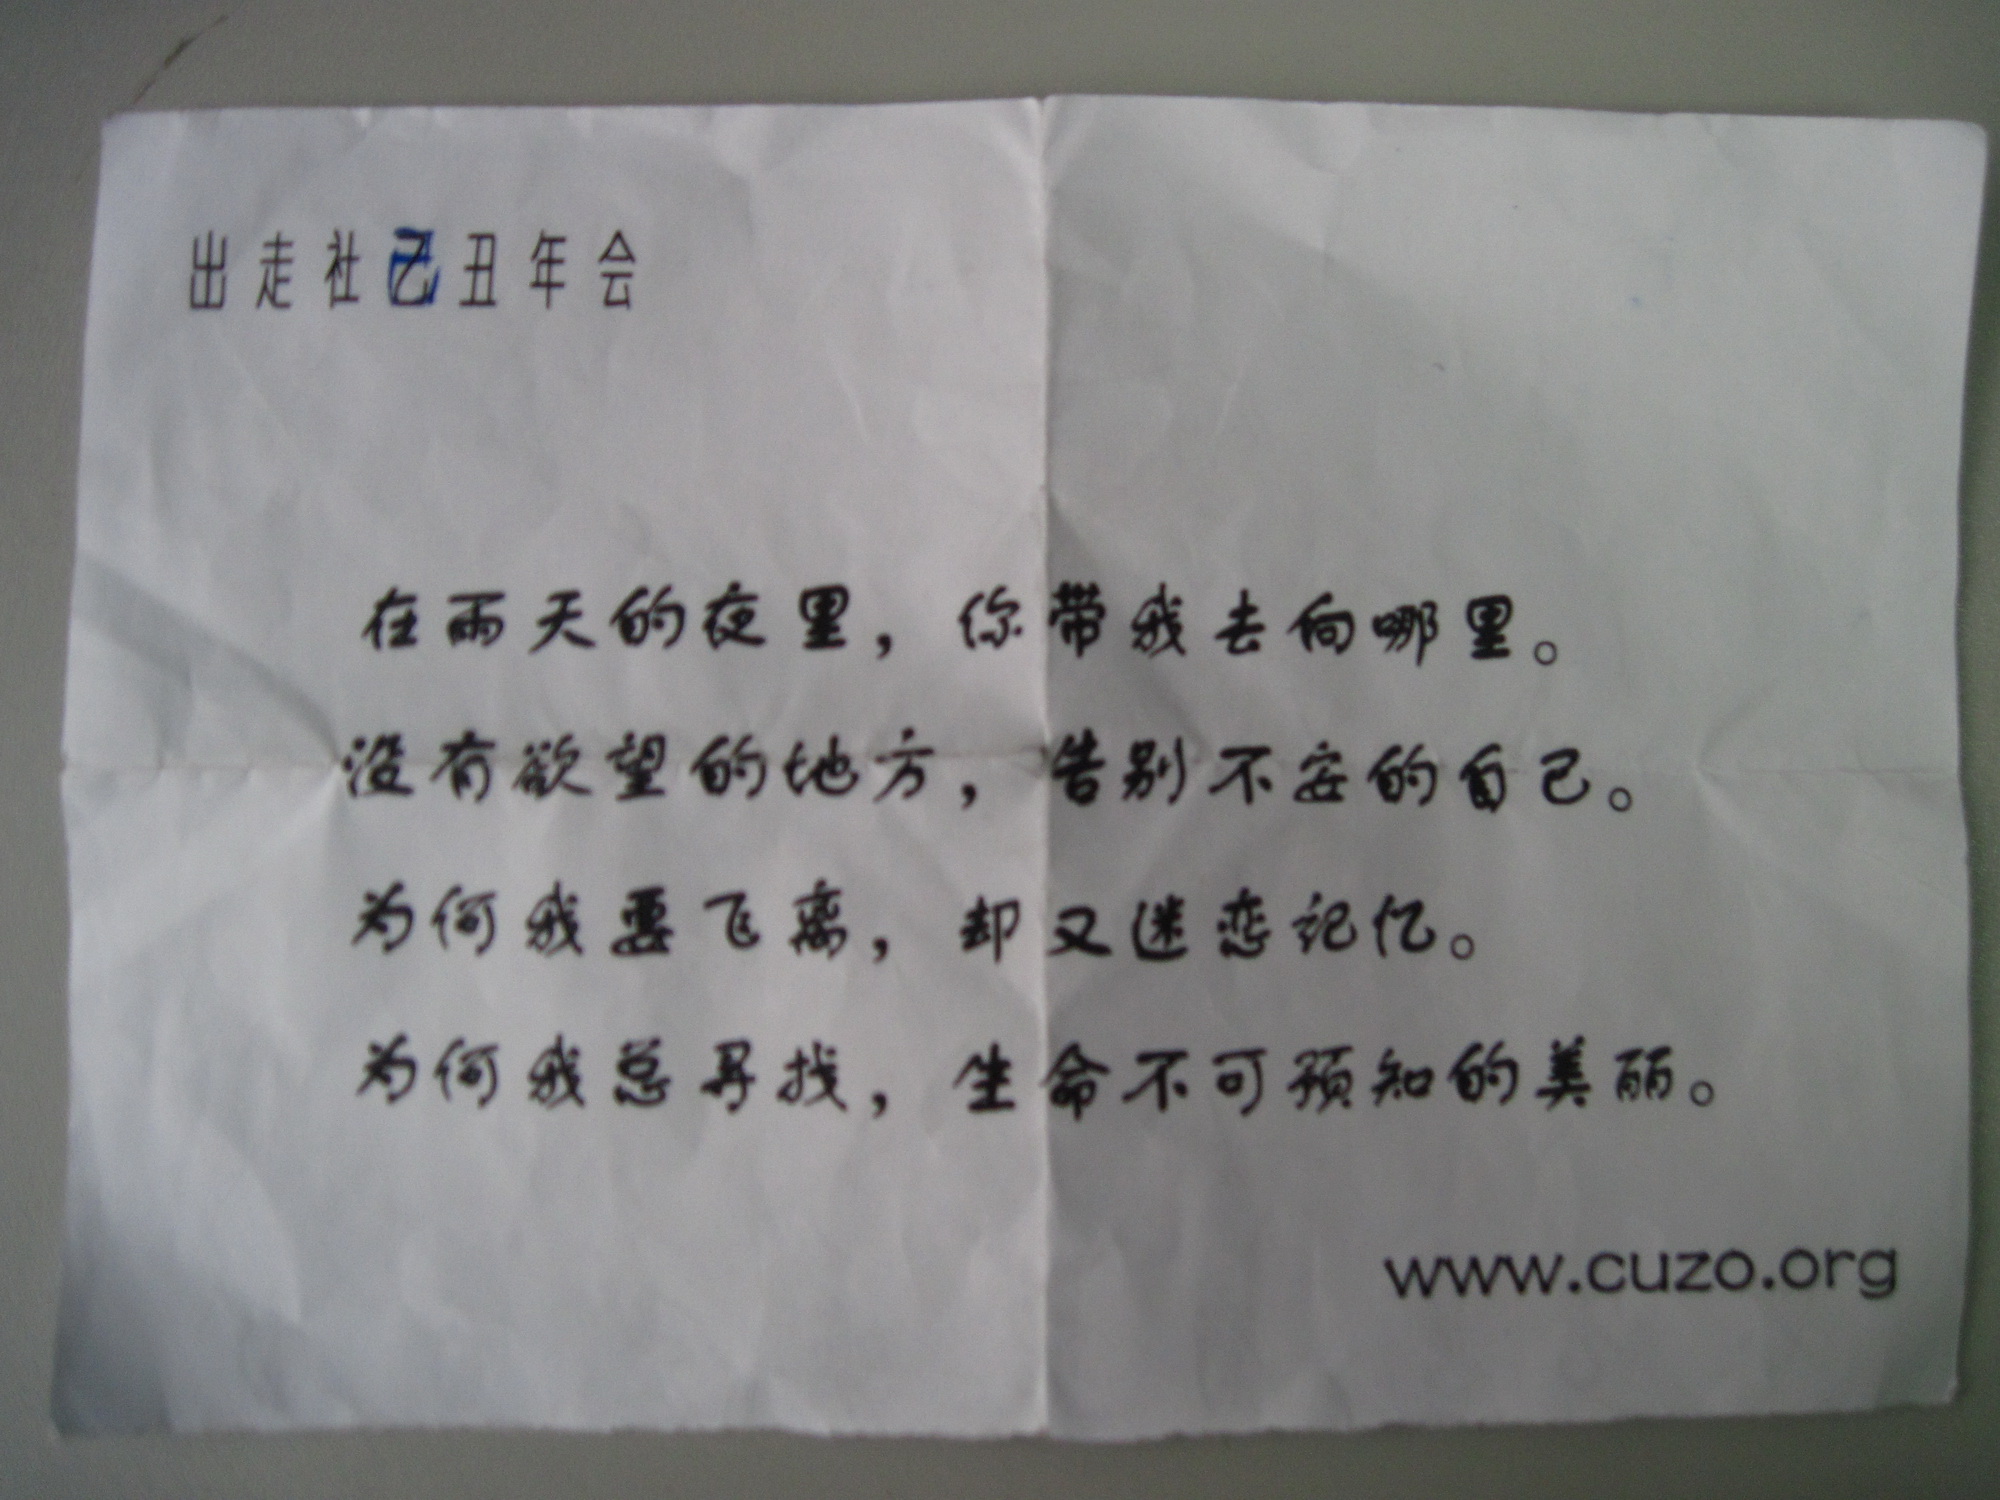 出走社己丑年会
在雨天的夜里，你带我去向哪里。
没有欲望的地方，告别不安的自己。
为何我要飞离，却又迷恋记忆。
为何我总寻找，生命不可预知的美丽。
www.cuzo.org